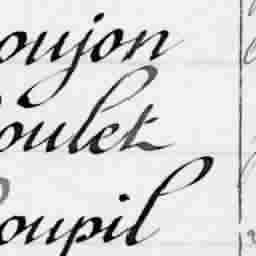 oujon
oulet
oupil